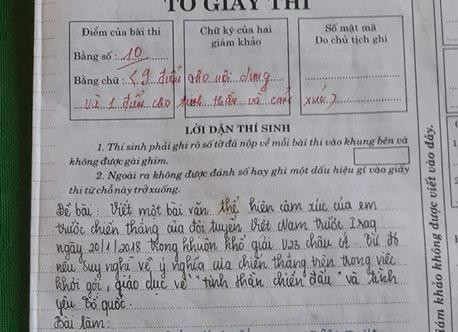 TỜ GIẤY THI
Điểm của bài thi
Bằng số : 10
Bằng chữ : (9 điểm cho nội dung
và 1 điểm cho tinh thần và cảm xúc)
Chữ ký của hai
giám khảo
Số mật mã
Do chủ tịch ghi
LỜI DẶN THÍ SINH
1. Thí sinh phải ghi rõ số tờ đã nộp về mỗi bài thi vào khung bên và
không được gài ghim.
2. Ngoài ra không được đánh số hay ghi một dấu hiệu gì vào giấy
thi từ chỗ này trở xuống.
Đề bài : Viết một bài văn thể hiện cảm xúc của em
trước chiến thắng của đội tuyển Việt Nam trước Iraq
ngày 20/1/2018 trong khuôn khổ giải U23 châu Á. Từ đó
nêu suy nghĩ về ý nghĩa của chiến thắng trên trong việc
khơi gợi, giáo dục về "tinh thần chiến đấu" và tình
yêu Tổ quốc.
Bài làm:
giám khảo không được viết vào đây.